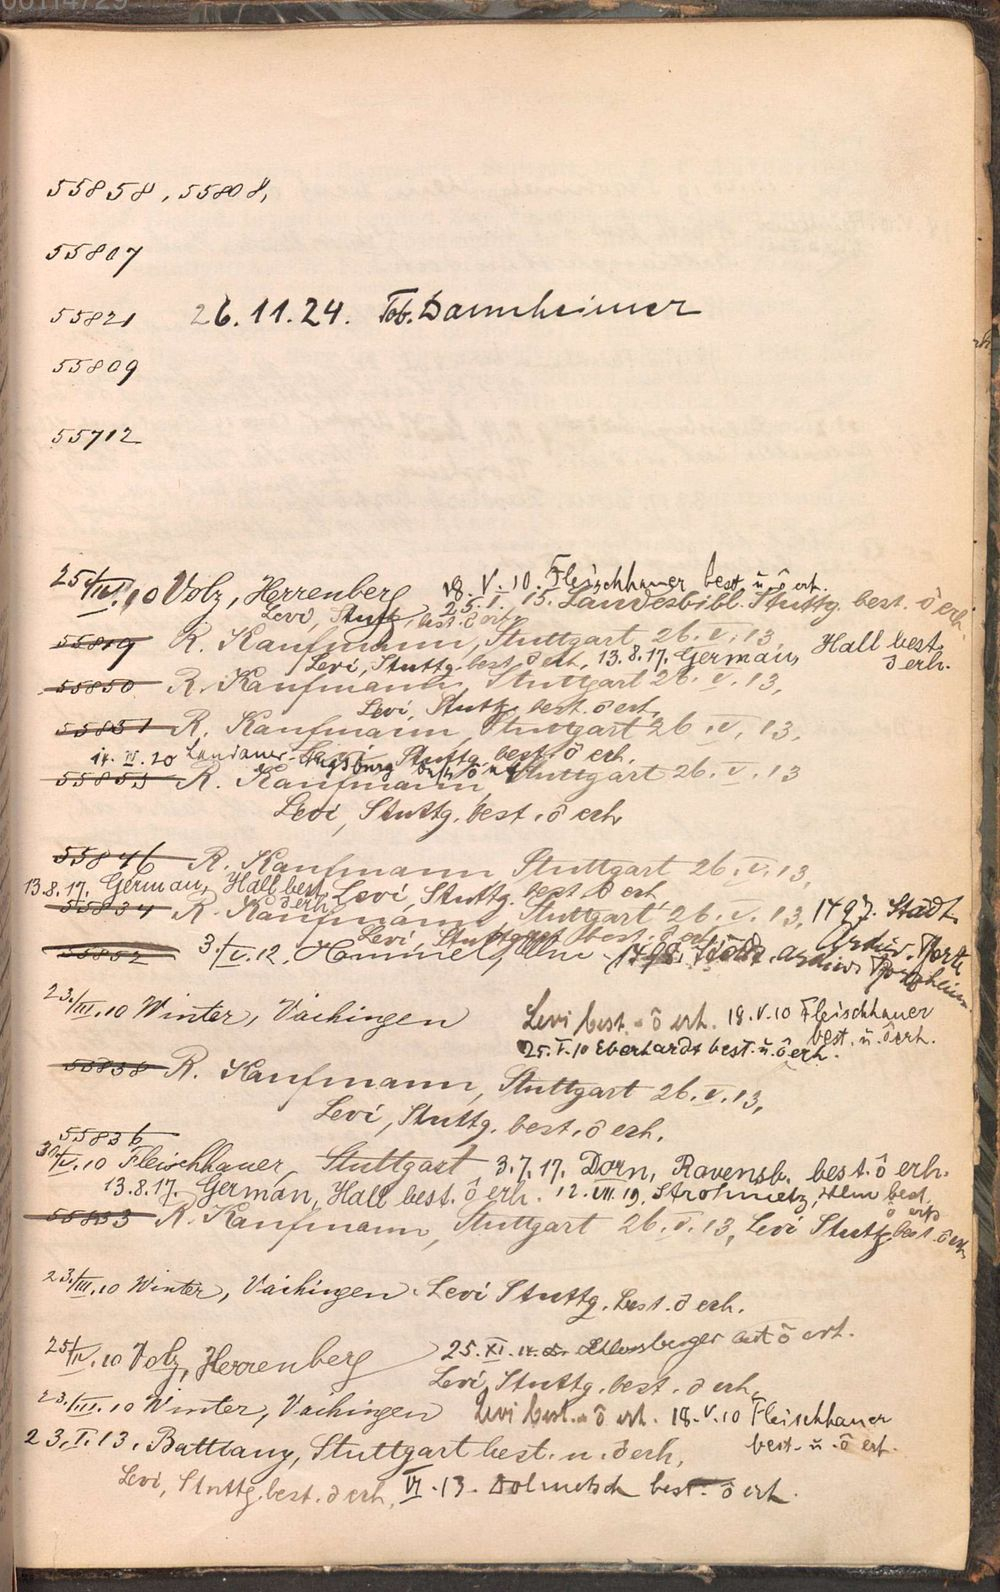 00114729
55858, 55808,
55807
55821 26.11.24. Tob. Dannheimer
55809
55712
25./IV. 10 Volz, Herrenberg 18. V. 10. Fleischhauer best. u. ô erh.
Levi, Stuttg. best. ô erh. 25. I. 15. Landesbibl. Stuttg. best. ô erh.
55819 R. Kaufmann, Stuttgart 26. V. 13,
Levi, Stuttg. best. ô erh. 13. 8. 17. German, Hall best. ô erh.
55850 R. Kaufmann, Stuttgart 26. V. 13,
Levi, Stuttg. best. ô erh.
55851 R. Kaufmann, Stuttgart 26. V. 13.
14. IV. 20 Landauer-Augsburg best. ô erh. Levi, Stuttg. best. ô erh.
55855 R. Kaufmann, Stuttgart 26. V. 13
Levi, Stuttg. best. ô erh
55846 R. Kaufmann, Stuttgart 26. V. 13,
13. 8. 17. German, Hall best. ô erh. Levi, Stuttg. best. ô erh
55834 R. Kaufmann, Stuttgart 26. V. 13, 1497. Stadt
Levi, Stuttgart best. ô erh. Archiv. Pforz
55852 3./V. 12. Hommel, Ulm 1498. Stadt. archiv. Pforzheim
23./III. 10 Winter, Vaihingen Levi best. ô erh. 18. V. 10 Fleischhauer best. u. ô erh.
25. I. 10 Eberhardt best. u. ô erh.
55838 R. Kaufmann, Stuttgart 26. V. 13,
Levi, Stuttg. best. ô erh.
55836
30/V. 10 Fleischhauer, Stuttgart 3. 7. 17. Dorn, Ravensb. best. ô erh.
13. 8. 17. German, Hall best. ô erh. 12. VIII. 19, Strohmetz, Ulm best. ô erh
55833 R. Kaufmann, Stuttgart 26. V. 13, Levi Stuttg. best. ô erh
23./III. 10 Winter, Vaihingen Levi Stuttg. best. ô erh.
25/IV. 10 Volz, Herrenberg 25. XI. 14. ant ô erh.
Levi, Stuttg. best. ô erh,
23./III. 10 Winter, Vaihingen Levi best. ô erh. 18. V. 10 Fleischhauer best. u. ô erh.
23. I. 13. Battiany, Stuttgart best. u. ô erh.
Levi, Stuttg. best. ô erh, VI. 13. Dolmetsch best. ô erh.